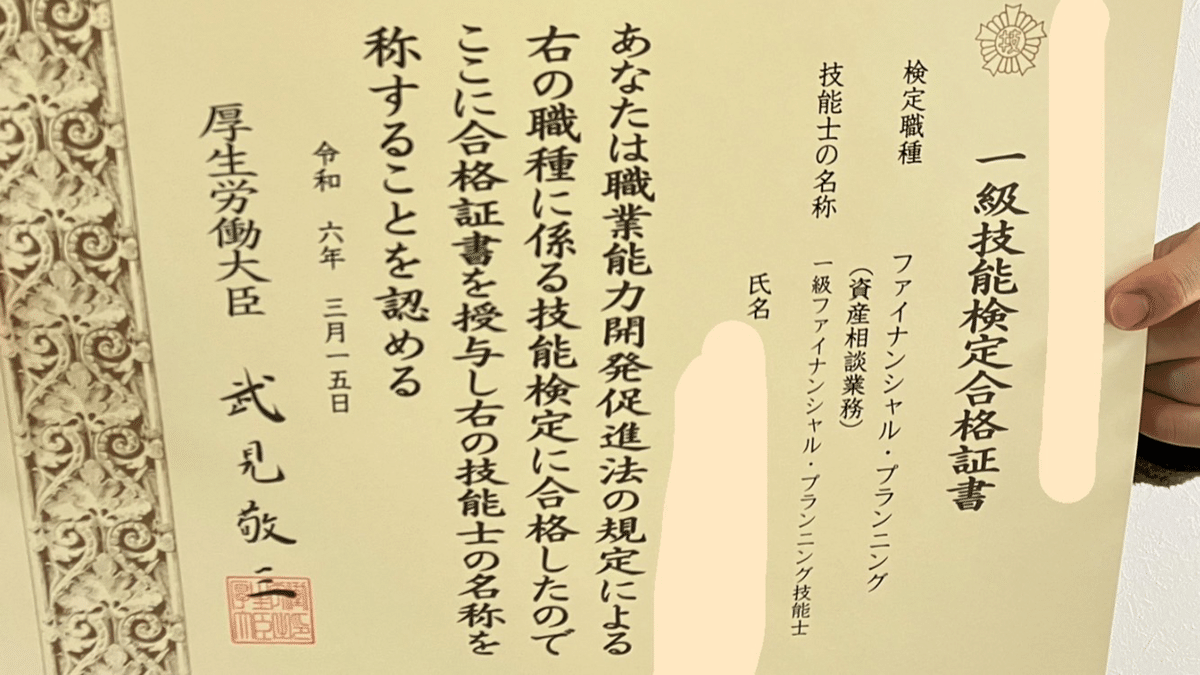 技
一級技能検定合格証書
検定職種 ファイナンシャル・プランニング
(資産相談業務)
技能士の名称 一級ファイナンシャル・プランニング技能士
氏名
あなたは職業能力開発促進法の規定による
右の職種に係る技能検定に合格したので
ここに合格証書を授与し右の技能士の名称を
称することを認める
令和 六年 三月一五日
厚生労働大臣 武見敬三